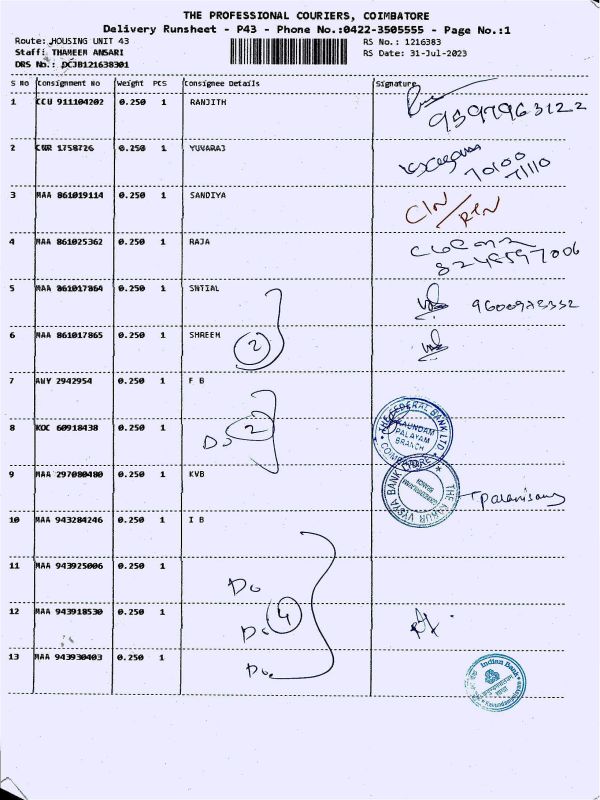 THE PROFESSIONAL COURIERS, COIMBATORE
Delivery Runsheet - P43 - Phone No.:0422-3505555 - Page No.:1
Route: HOUSING UNIT 43 RS No.: 1216383
Staff: THAMEEM ANSARI RS Date: 31-Jul-2023
DRS No.: DCJB121638301
S No Consignment No Weight PCS Consignee Details Signature
1 CCU 911104202 0.250 1 RANJITH
9597963122
2 CNR 1758726 0.250 1 YUVARAJ
70100
71110
3 MAA 861019114 0.250 1 SANDIYA CIN/RTN
4 MAA 861025362 0.250 1 RAJA
8248597006
5 MAA 861017864 0.250 1 SNTIAL
6 MAA 861017865 0.250 1 SHREEM
2
7 AWY 2942954 0.250 1 F B
8 KOC 60918438 0.250 1 Do 2
THE FEDERAL BANK LTD
KAUNDAM
PALAYAM
BRANCH
COIMBATORE
9 MAA 297080480 0.250 1 KVB
THE KARUR VYSYA BANK LTD
BRANCH
10 MAA 943284246 0.250 1 I B
11 MAA 943925006 0.250 1
Do
12 MAA 943918530 0.250 1 Do 4
13 MAA 943930403 0.250 1 Do
Indian Bank